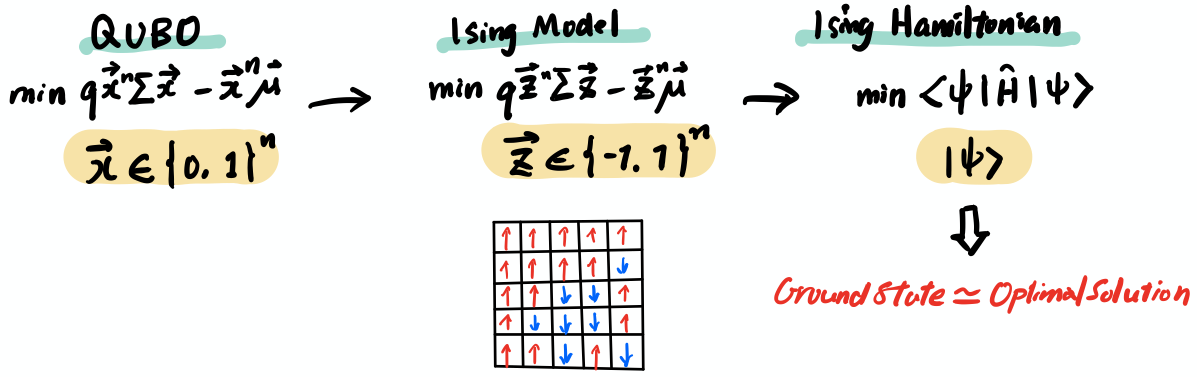 QUBO
min q x⃗ⁿ Σ x⃗ − x⃗ⁿ μ⃗
x⃗ ∈ {0, 1}ⁿ
Ising Model
min q z⃗ⁿ Σ z⃗ − z⃗ⁿ μ⃗
z⃗ ∈ {-1, 1}ⁿ
Ising Hamiltonian
min <ψ|Ĥ|ψ>
|ψ>
Ground State ≃ Optimal Solution